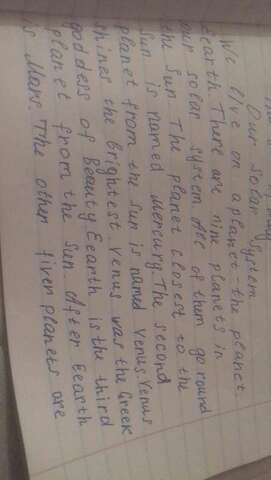 Our solar system
We live on a planet - the planet
Earth. There are nine planets in
our solar system. All of them go round
the Sun. The planet closest to the
Sun is named Mercury. The second
planet from the Sun is named Venus. Venus
shines the brightest. Venus was the Greek
goddess of Beauty Eearth is the third
planet from the Sun. After Eearth
is Mars. The other fiver planets are